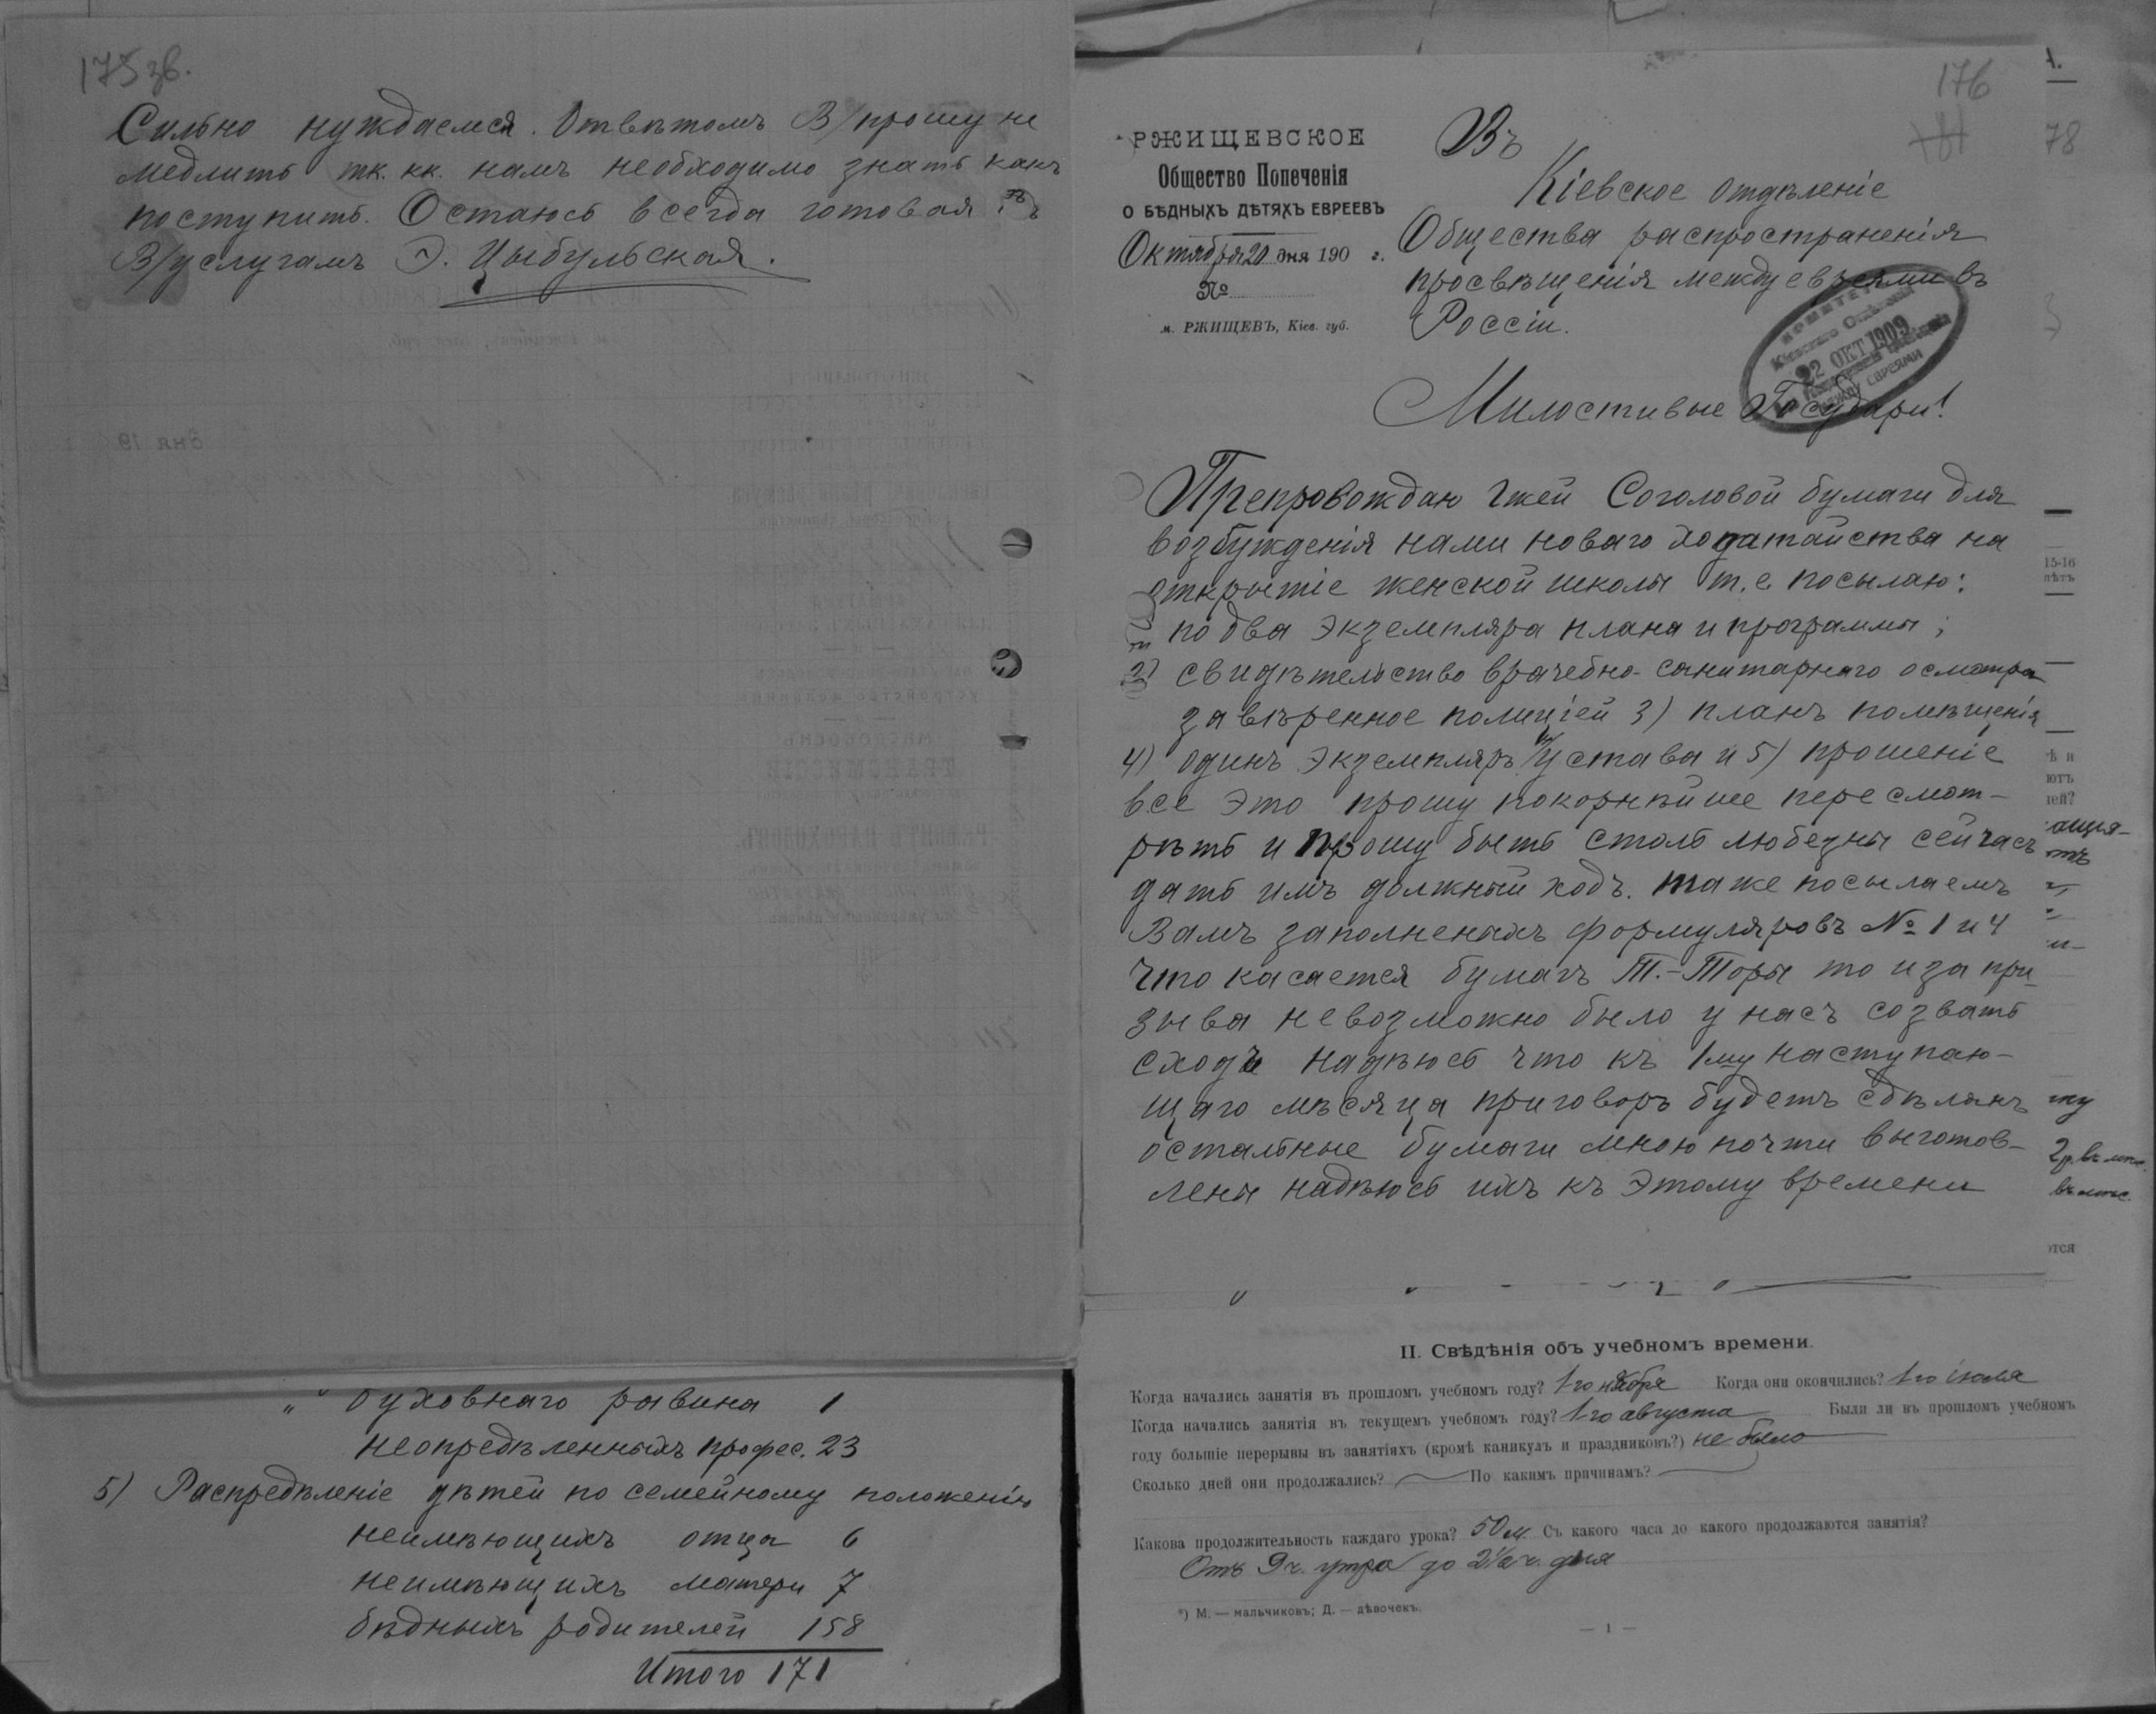 175 зв.
Сильно нуждаемся. Отвѣтомъ В/прошу не
медлить тк. кк. намъ необходимо знать какъ
поступить. Остаюсь всегда готовая къ
В/услугамъ Э. Цыбульская.
" духовнаго равина 1
неопредѣленныхъ профес. 23
5) Распредѣленіе дѣтей по семейному положенію
неимѣющихъ отца 6
неимѣющихъ матери 7
бѣдныхъ родителей 158
Итого 171
176
78
РЖИЩЕВСКОЕ
Общество Попеченія
О БѢДНЫХЪ ДѢТЯХЪ ЕВРЕЕВЪ
Октября 20 дня 190 г.
№
м. РЖИЩЕВЪ, Кіев. губ.
Въ
Кіевское отдѣленіе
Общества распространенія
просвѣщенія между евреями въ
Россіи.
КОМИТЕТ
Кіевскаго Отдѣленія
22 ОКТ 1909
МЕЖДУ ЕВРЕЯМИ
Милостивые Государи!
Препровождаю Гжей Соголовой бумаги для
возбужденія нами новаго ходатайства на
открытіе женской школы т. е. посылаю:
по два экземпляра плана и программы;
2) свидѣтельство врачебно-санитарнаго осмотра
завѣренное полиціей 3) планъ помѣщенія
4) одинъ экземпляръ н/устава и 5) прошеніе
все это прошу покорнѣйше пересмот-
рѣть и прошу быть столь любезны сейчасъ
дать имъ должный ходъ. таже посылаемъ
Вамъ заполненыхъ формуляровъ № 1 и 4
Что касается бумагъ Т.-Торы то иза при-
зыва невозможно было у насъ созвать
сходъ надѣюсь что къ 1му наступаю-
щаго мѣсяца приговоръ будетъ сдѣланъ
остальные бумаги мною почти выготов-
лены надѣюсь ихъ къ этому времени
15-16
лѣтъ
ѣ и
ютъ
лей?
ется
II. Свѣдѣнія объ учебномъ времени.
Когда начались занятія въ прошломъ учебномъ году? 1-го ноября Когда они окончились? 1-го іюля
Когда начались занятія въ текущемъ учебномъ году? 1-го августа Были ли въ прошломъ учебномъ
году большіе перерывы въ занятіяхъ (кромѣ каникулъ и праздниковъ?) не было
Сколько дней они продолжались? По какимъ причинамъ?
Какова продолжительность каждаго урока? 50 м. Съ какого часа до какого продолжаются занятія?
Отъ 9 ч. утра до 2½ ч. дня
*) М. — мальчиковъ; Д. — дѣвочекъ.
— 1 —